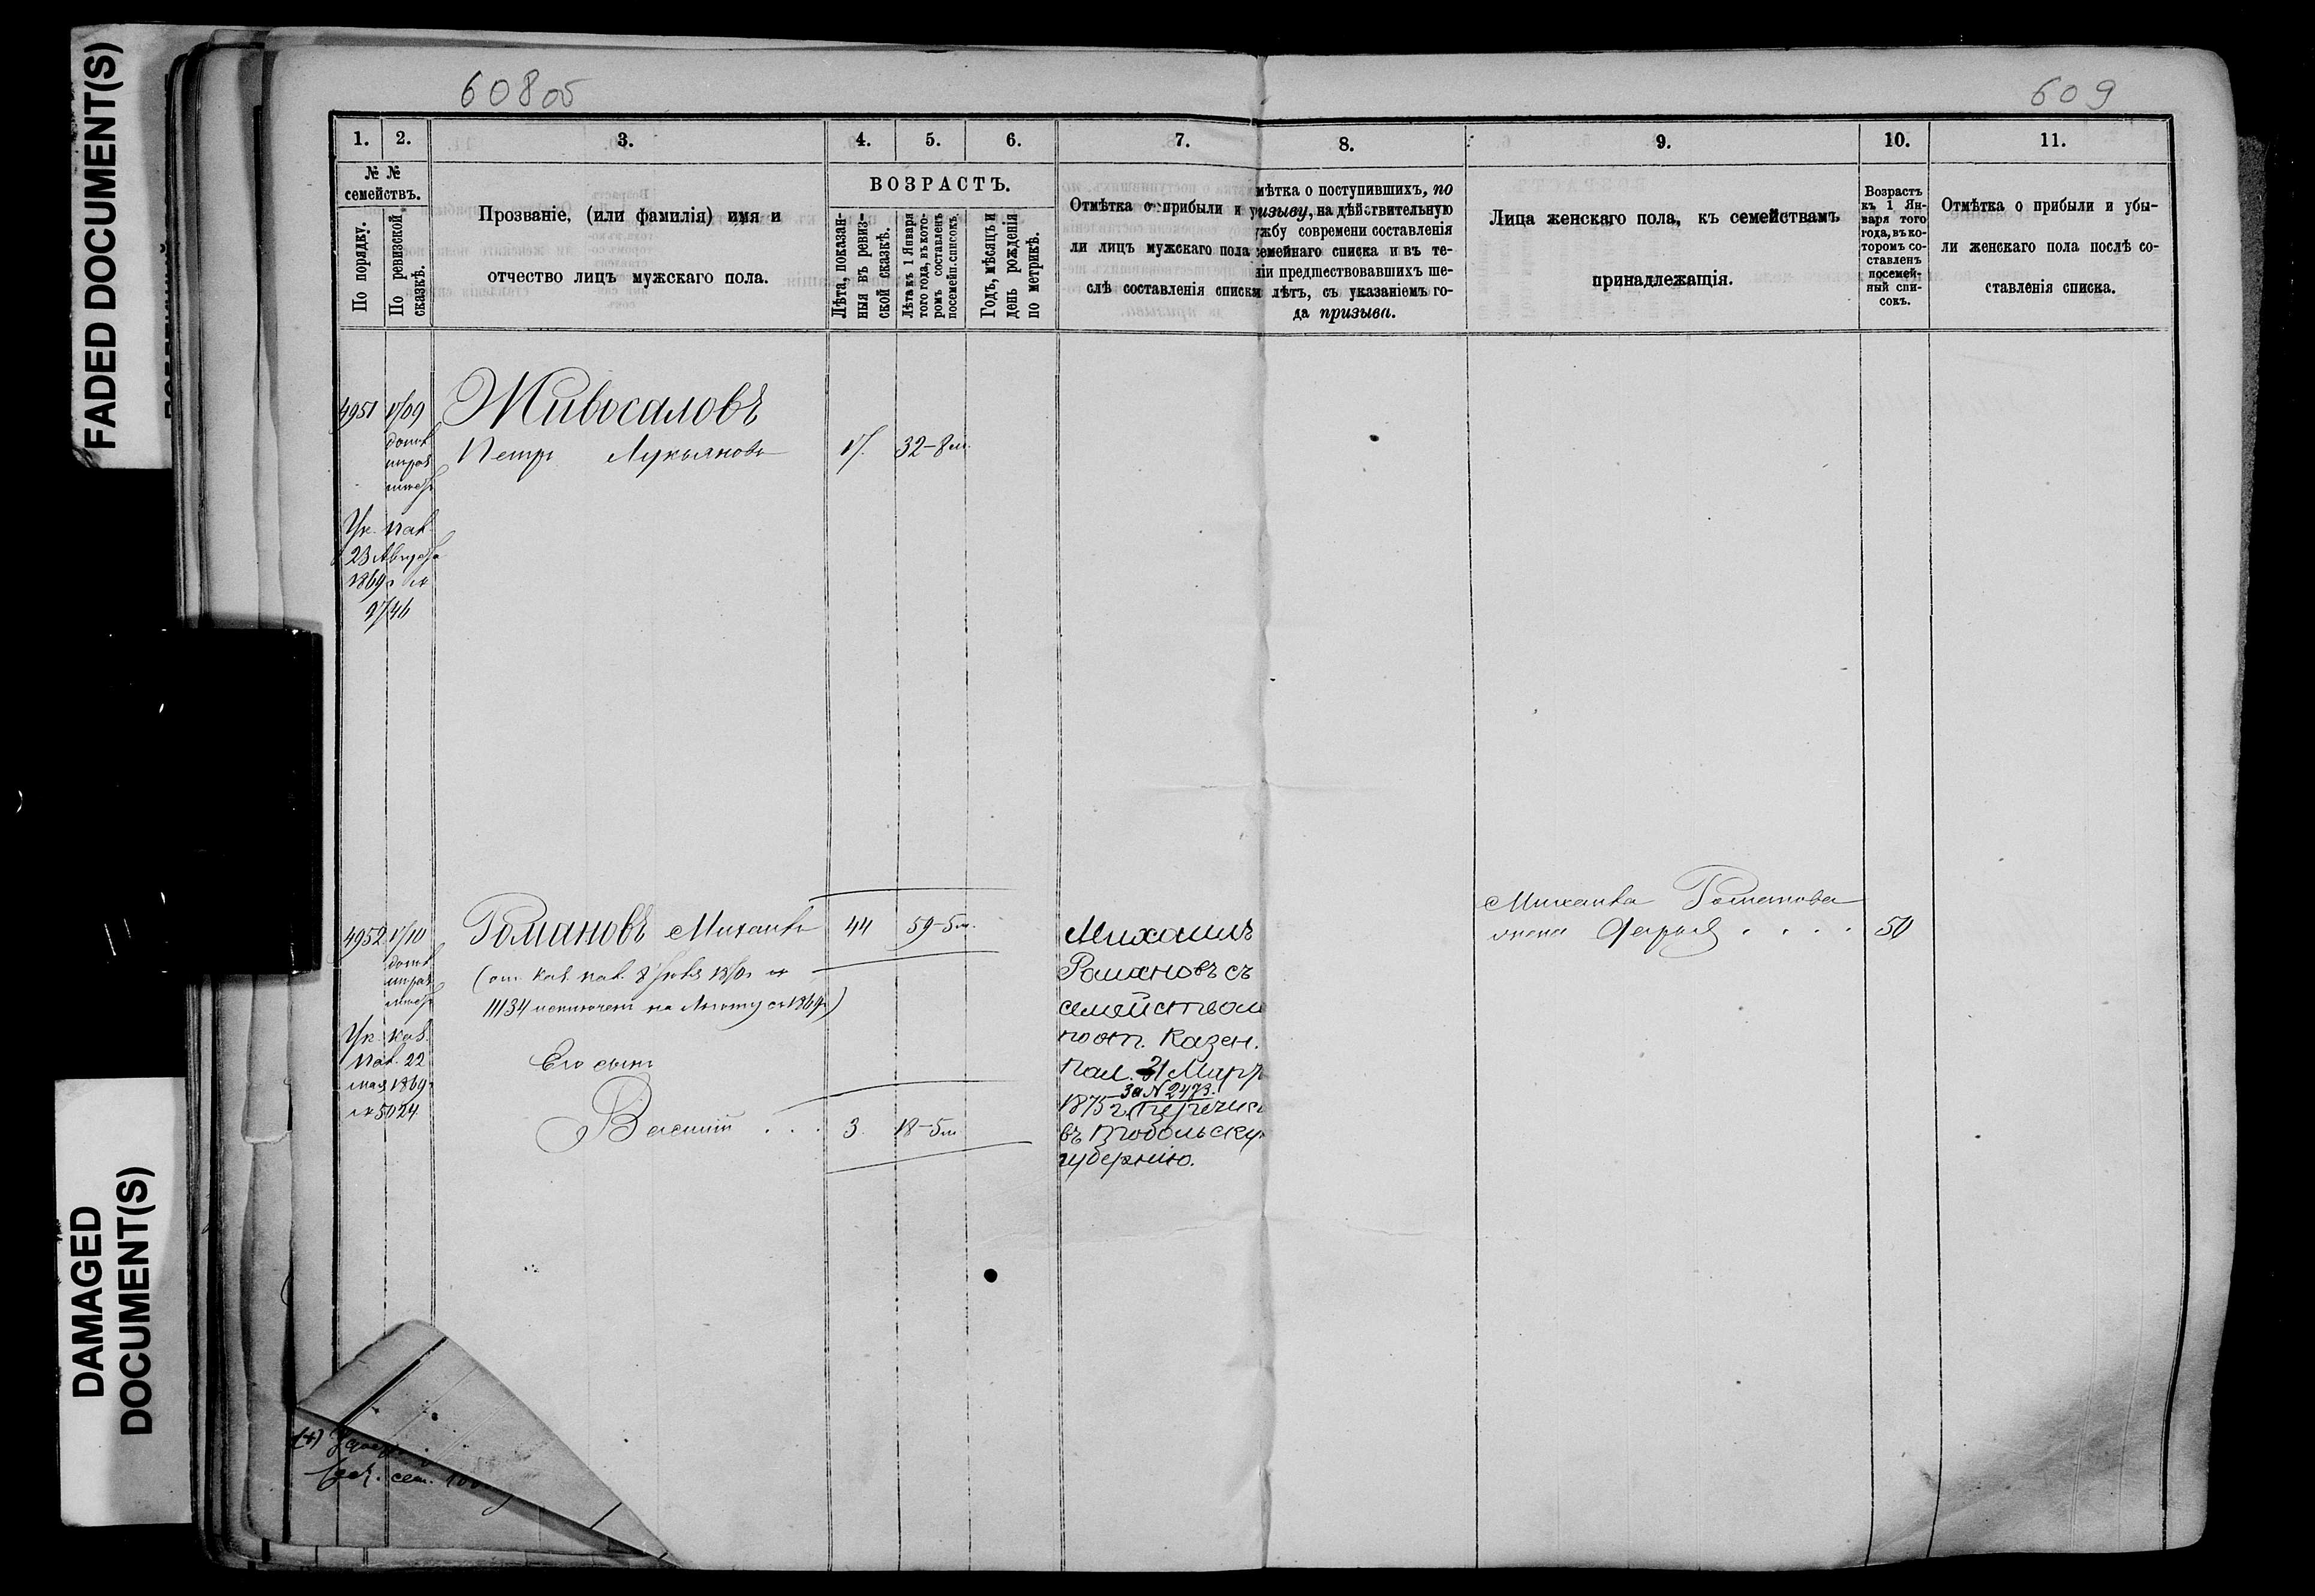 FADED DOCUMENT(S)
608об
609
1. 2. 3. 4. 5. 6. 7. 8. 9. 10. 11.
№ №
семействъ.
По порядку.
По ревизской
сказкѣ.
Прозваніе, (или фамилія) имя и
отчество лицъ мужскаго пола.
ВОЗРАСТЪ.
Лѣта, показан-
ныя въ ревиз-
ской сказкѣ.
Лѣта къ 1 Января
того года, въ кото-
ромъ составленъ
посемейн. списокъ.
Годъ, мѣсяцъ и
день рожденія
по метрикѣ.
Отмѣтка о прибыли и у
ли лицъ мужскаго пола
слѣ составленія списка
мѣтка о поступившихъ, по
изыву, на дѣйствительную
ужбу современи составленія
семейнаго списка и въ те-
ніи предшествовавшихъ ше-
и лѣтъ, съ указаніемъ го-
да призыва.
Лица женскаго пола, къ семействамъ
принадлежащія.
Возрастъ
къ 1 Ян-
варя того
года, въ ко-
торомъ со-
ставленъ
посемей-
ный спи-
сокъ.
Отмѣтка о прибыли и убы-
ли женскаго пола послѣ со-
ставленія списка.
4951
Живосаловъ
Петръ Лукьяновъ 17. 32-8м.
Ук. пал.
23 Август
1869 г. №
2746
4952
Романовъ Михаилъ 44 59-5м.
11134 исключенъ на льготу съ 1869г)
Ук. каз.
пал. 22
мая 1869
№ 5024
Его сынъ
Василий . . . 3. 18-5м
Михаилъ
Романовъ съ
семействомъ
по от. Казен.
Пал. 21 Март
за N 2473.
1875 г. перечисл
въ Тобольскую
губернію.
Михаила Романова
жена Дарья . . . . 50
(+)
DAMAGED
DOCUMENT(S)